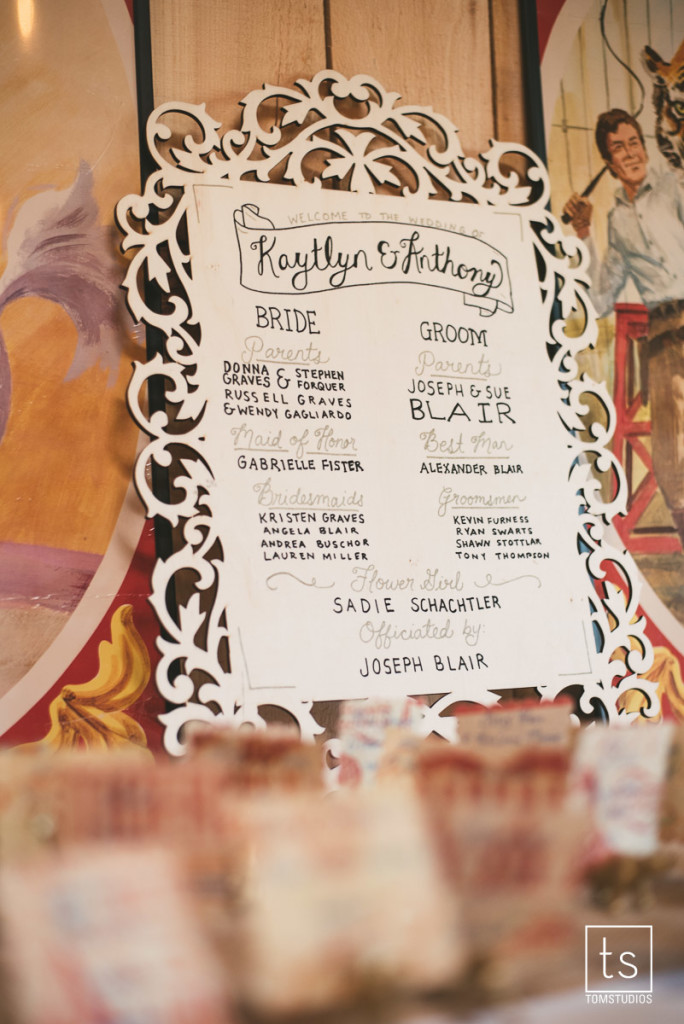 WELCOME TO THE WEDDING OF
Kaytlyn & Anthony
BRIDE
Parents
DONNA & STEPHEN
GRAVES & FORQUER
RUSSELL GRAVES
& WENDY GAGLIARDO
Maid of Honor
GABRIELLE FISTER
Bridesmaids
KRISTEN GRAVES
ANGELA BLAIR
ANDREA BUSCHOR
LAUREN MILLER
GROOM
Parents
JOSEPH & SUE
BLAIR
Best Man
ALEXANDER BLAIR
Groomsmen
KEVIN FURNESS
RYAN SWARTS
SHAWN STOTTLAR
TONY THOMPSON
Flower Girl
SADIE SCHACHTLER
Officiated by:
JOSEPH BLAIR
ts
TOMSTUDIOS